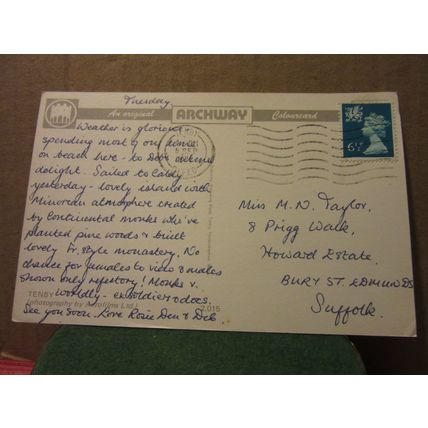 Tuesday
An original ARCHWAY Colourcard
Weather is glorious
spending most of our time
on beach here - to Deb's
delight. Sailed to Caldy
yesterday - lovely island with
Minorcan atmosphere created
by Continental monks who've
planted pine woods & built
lovely Fr. style monastery. No
chance for females to view & males
shown only refectory! Monks v.
worldly - ex soldiers & docs.
TENBY
(photography by Aerofilms Ltd.)
2.015
See you soon. Love Rosie Den & Deb.
6½P
Miss M. N. Taylor,
8 Prigg Walk,
Howard Estate,
BURY ST. EDMUNDS
Suffolk.